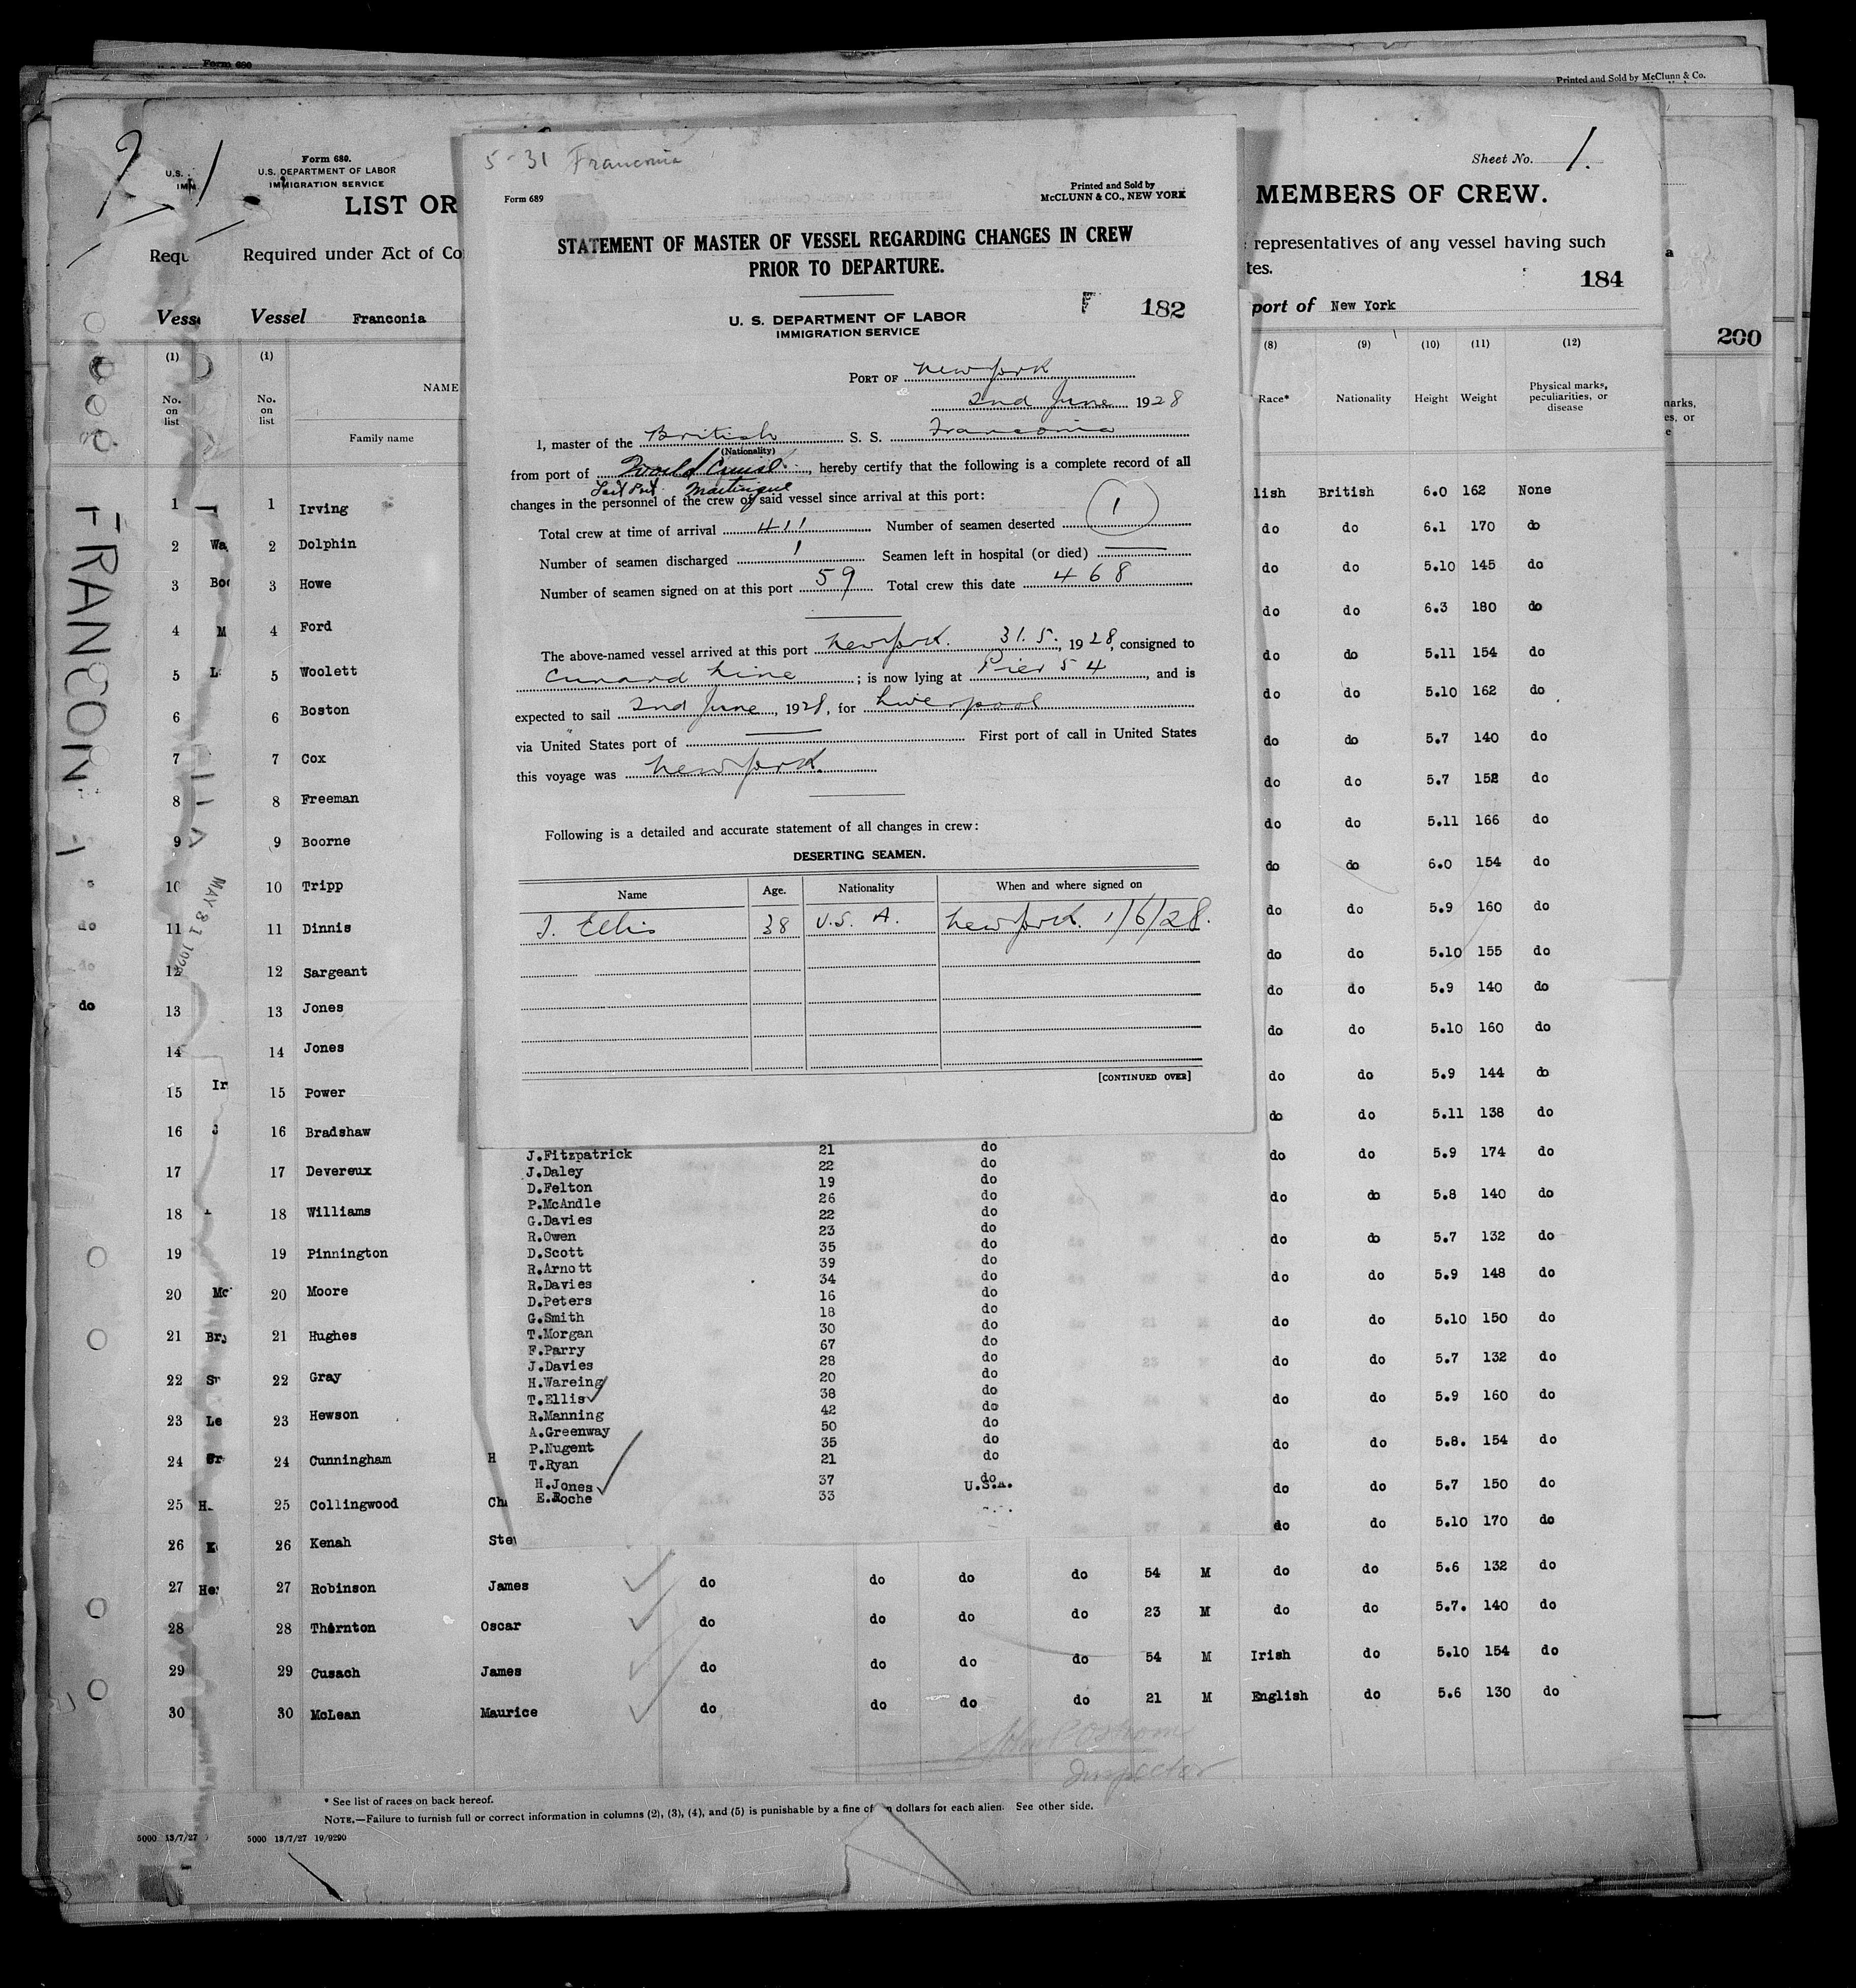 Form 680
Printed and Sold by McClunn & Co.
5-31 Franconia
Form 689
Printed and Sold by
McCLUNN & CO., NEW YORK
STATEMENT OF MASTER OF VESSEL REGARDING CHANGES IN CREW
PRIOR TO DEPARTURE.
F 182
U. S. DEPARTMENT OF LABOR
IMMIGRATION SERVICE
PORT OF New York
2nd June 1928
I, master of the British S. S. Franconia
(Nationality)
from port of World Cruise, hereby certify that the following is a complete record of all
Last Port Martinique
changes in the personnel of the crew of said vessel since arrival at this port:
Total crew at time of arrival 411 Number of seamen deserted 1
Number of seamen discharged 1 Seamen left in hospital (or died)
Number of seamen signed on at this port 59 Total crew this date 468
The above-named vessel arrived at this port New York. 31.5., 1928, consigned to
Cunard Line; is now lying at Pier 54, and is
expected to sail 2nd June, 1928, for Liverpool
via United States port of First port of call in United States
this voyage was New York.
Following is a detailed and accurate statement of all changes in crew:
DESERTING SEAMEN.
Name Age. Nationality When and where signed on
T. Ellis 38 U.S.A. New York. 1/6/28.
[CONTINUED OVER]
J.Fitzpatrick 21 do
J.Daley 22 do
D.Felton 19 do
P.McAndle 26 do
G.Davies 22 do
R.Owen 23 do
D.Scott 35 do
R.Arnott 39 do
R.Davies 34 do
D.Peters 16 do
G.Smith 18 do
T.Morgan 30 do
F.Parry 67 do
J.Davies 28 do
H.Wareing 20 do
T.Ellis 38 do
R.Manning 42 do
A.Greenway 50 do
P.Nugent 35 do
T.Ryan 21 do
H.Jones 37 do
E.Roche 33 U.S.A.
Form 680.
U.S. DEPARTMENT OF LABOR
IMMIGRATION SERVICE
Sheet No. 1.
LIST OR MEMBERS OF CREW.
Required under Act of Co representatives of any vessel having such
tes.
184
Vessel Franconia port of New York
200
(1) (1) (8) (9) (10) (11) (12)
No. on list No. on list NAME Family name Race* Nationality Height Weight Physical marks, peculiarities, or disease
FRANCONI
MAY 31
1 1 Irving lish British 6.0 162 None
2 2 Dolphin do do 6.1 170 do
3 3 Howe do do 5.10 145 do
4 4 Ford do do 6.3 180 do
5 5 Woolett do do 5.11 154 do
6 6 Boston do do 5.10 162 do
7 7 Cox do do 5.7 140 do
8 8 Freeman do do 5.7 152 do
9 9 Boorne do do 5.11 166 do
10 10 Tripp do do 6.0 154 do
11 11 Dinnis do do 5.9 160 do
12 12 Sargeant do do 5.10 155 do
13 13 Jones do do 5.9 140 do
14 14 Jones do do 5.10 160 do
15 15 Power do do 5.9 144 do
16 16 Bradshaw do do 5.11 138 do
17 17 Devereux do do 5.9 174 do
18 18 Williams do do 5.8 140 do
19 19 Pinnington do do 5.7 132 do
20 20 Moore do do 5.9 148 do
21 21 Hughes do do 5.10 150 do
22 22 Gray do do 5.7 132 do
23 23 Hewson do do 5.9 160 do
24 24 Cunningham H do do 5.8. 154 do
25 25 Collingwood do do 5.7 150 do
26 26 Kenah Ste do do 5.10 170 do
27 27 Robinson James do do do do 54 M do do 5.6 132 do
28 28 Thornton Oscar do do do do 23 M do do 5.7. 140 do
29 29 Cusach James do do do do 54 M Irish do 5.10 154 do
30 30 McLean Maurice do do do do 21 M English do 5.6 130 do
Inspector
* See list of races on back hereof.
NOTE.—Failure to furnish full or correct information in columns (2), (3), (4), and (5) is punishable by a fine of dollars for each alien. See other side.
5000 13/7/27 5000 13/7/27 19/9290